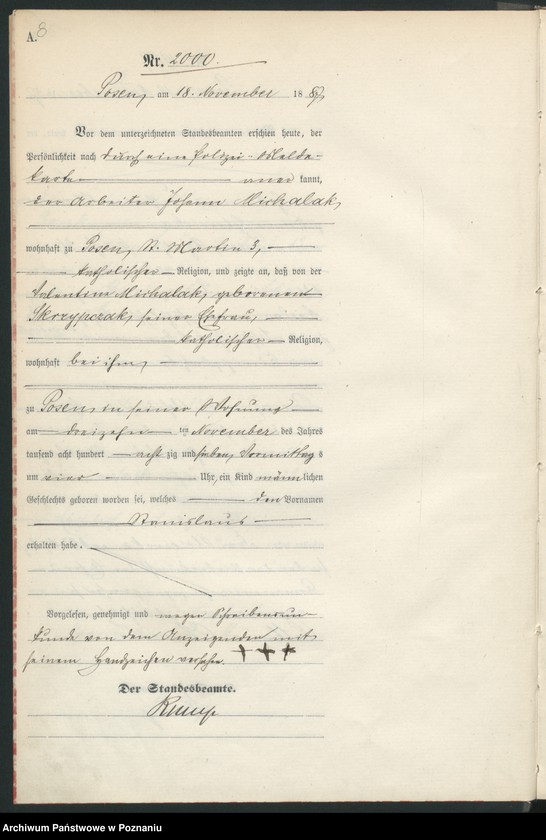 A. 8
Nr. 2000.
Posen, am 18. November 1887
Vor dem unterzeichneten Standesbeamten erschien heute, der
Persönlichkeit nach durch eine Polizei-Melde-
karte anerkannt,
der Arbeiter Johann Michalak,
wohnhaft zu Posen, St. Martin 3,
katholischer Religion, und zeigte an, daß von der
Valentina Michalak, geborenen
Skrzypczak, seiner Ehefrau,
katholischer Religion,
wohnhaft bei ihm,
zu Posen, in seiner Wohnung
am dreizehnten November des Jahres
tausend acht hundert achtzig und sieben, Vormittags
um vier Uhr, ein Kind männlichen
Geschlechts geboren worden sei, welches den Vornamen
Stanislaus
erhalten habe.
Vorgelesen, genehmigt und wegen Schreibensun-
kunde von dem Anzeigenden mit
seinem Handzeichen versehen. +++
Der Standesbeamte.
Archiwum Państwowe w Poznaniu